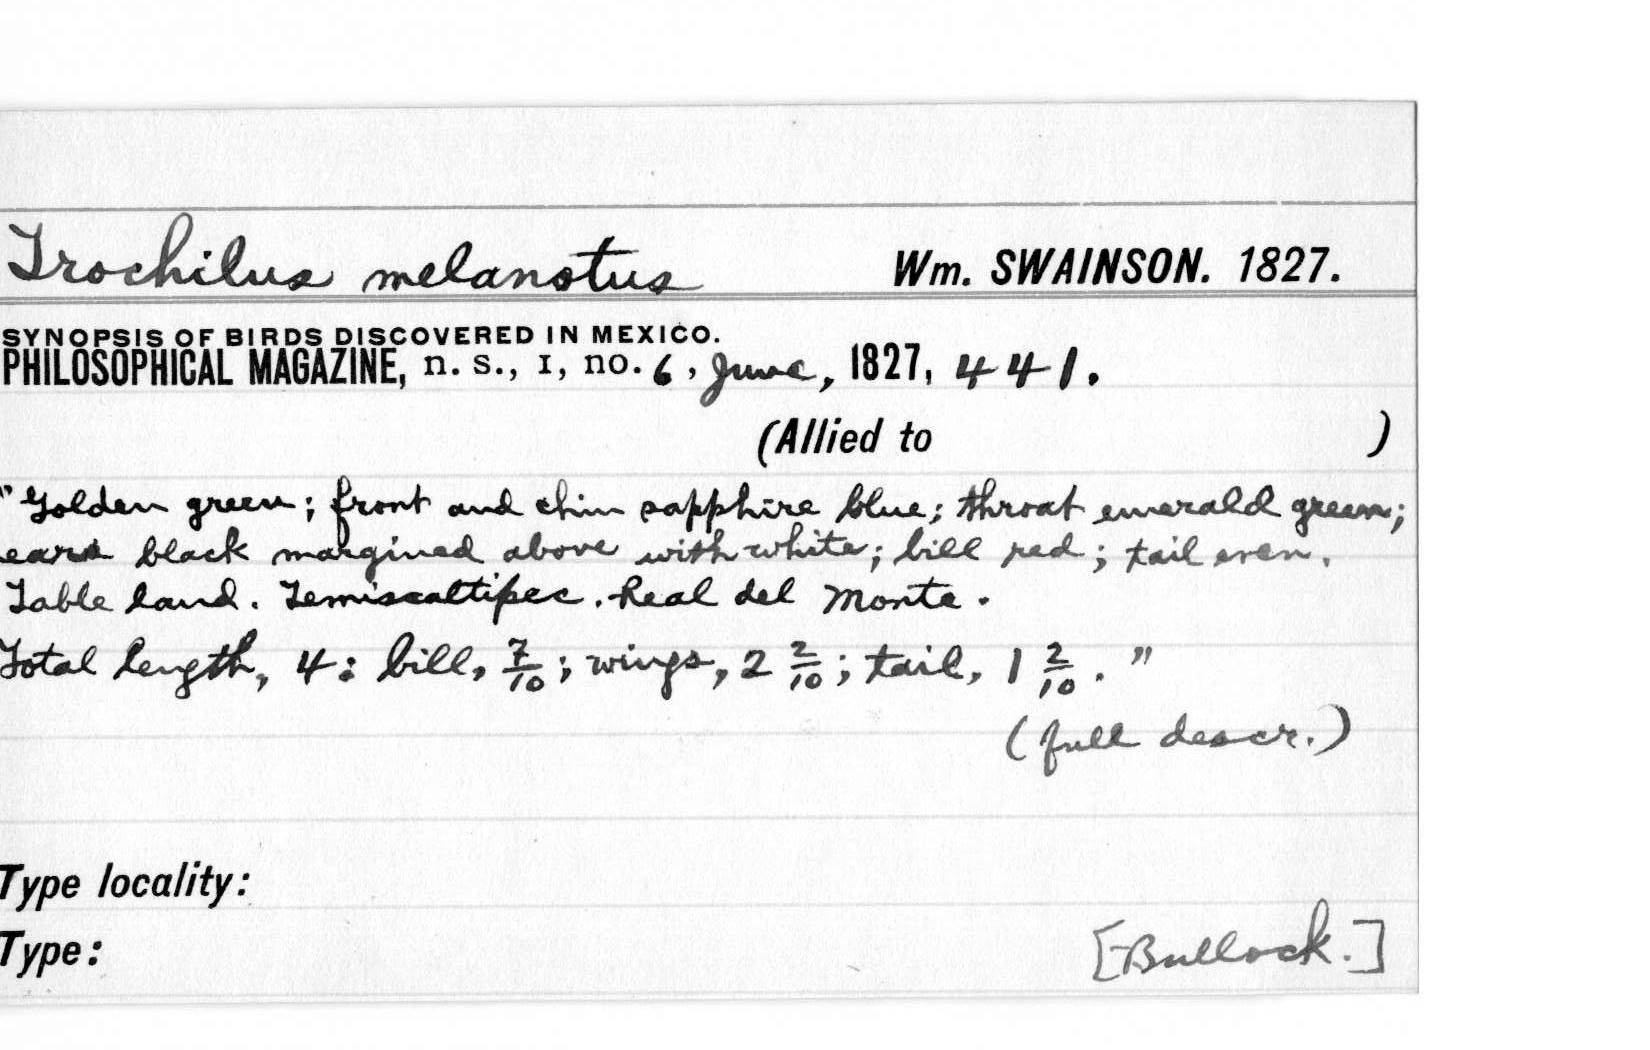 Trochilus melanotus Wm. SWAINSON. 1827.
SYNOPSIS OF BIRDS DISCOVERED IN MEXICO.
PHILOSOPHICAL MAGAZINE, n. s., I, no. 6, June, 1827, 441.
(Allied to )
"Golden green; front and chin sapphire blue; throat emerald green;
ears black margined above with white; bill red; tail even.
Table land. Temiscaltipec. Real del Monte.
Total length, 4: bill, 7/10; wings, 2 2/10; tail, 1 2/10."
(full descr.)
Type locality:
Type: [Bullock.]